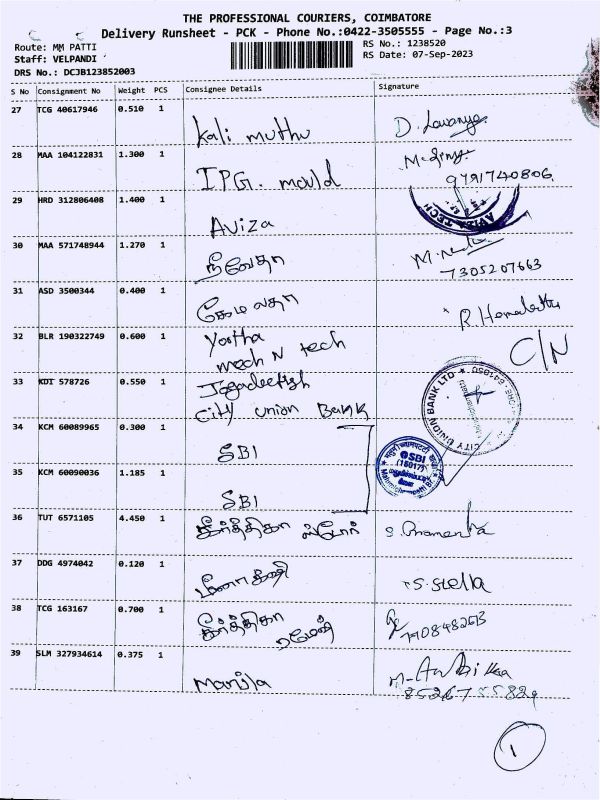 THE PROFESSIONAL COURIERS, COIMBATORE
Delivery Runsheet - PCK - Phone No.:0422-3505555 - Page No.:3
Route: MM PATTI
RS No.: 1238520
Staff: VELPANDI
RS Date: 07-Sep-2023
DRS No.: DCJB123852003
S No Consignment No Weight PCS Consignee Details Signature
27 TCG 40617946 0.510 1
Kali muthu D. Lavanya
28 MAA 104122831 1.300 1
IPG. mould 9791740806
29 HRD 312806408 1.400 1
Aviza AVIZA TECH
30 MAA 571748944 1.270 1
நிவேதா 7305207663
31 ASD 3500344 0.400 1
ஹேமலதா R. Hemalatha
32 BLR 190322749 0.600 1
mech N tech C/N
33 KDI 578726 0.550 1
Jagadeesh
City union Bank CITY UNION BANK LTD
34 KCM 60089965 0.300 1
SBI SBI
(16017)
35 KCM 60090036 1.185 1
SBI
36 TUT 6571105 4.450 1
கீர்த்திகா ஸ்டோர்
37 DDG 4974042 0.120 1
மீனாகுமாரி S. Stella
38 TCG 163167 0.700 1
கீர்த்திகா
ரமேஷ்
39 SLM 327934614 0.375 1
1